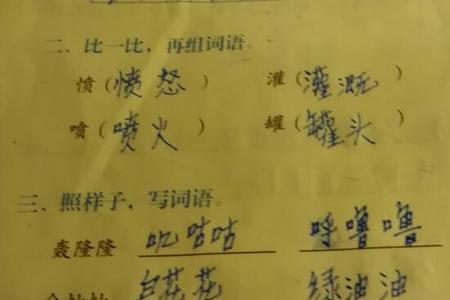 二、比一比，再组词语。
愤（愤怒） 灌（灌溉）
喷（喷火） 罐（罐头）
三、照样子，写词语。
轰隆隆 叽咕咕 呼噜噜
白花花 绿油油